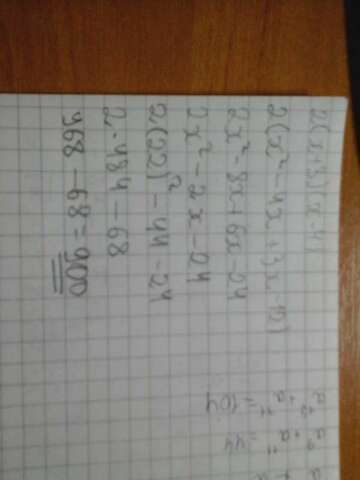 2(x+3)(x-4)
2(x²-4x+3x-12)
2x²-8x+6x-24
2x²-2x-24
2(22)²-44-24
2·484-68
968-68=900